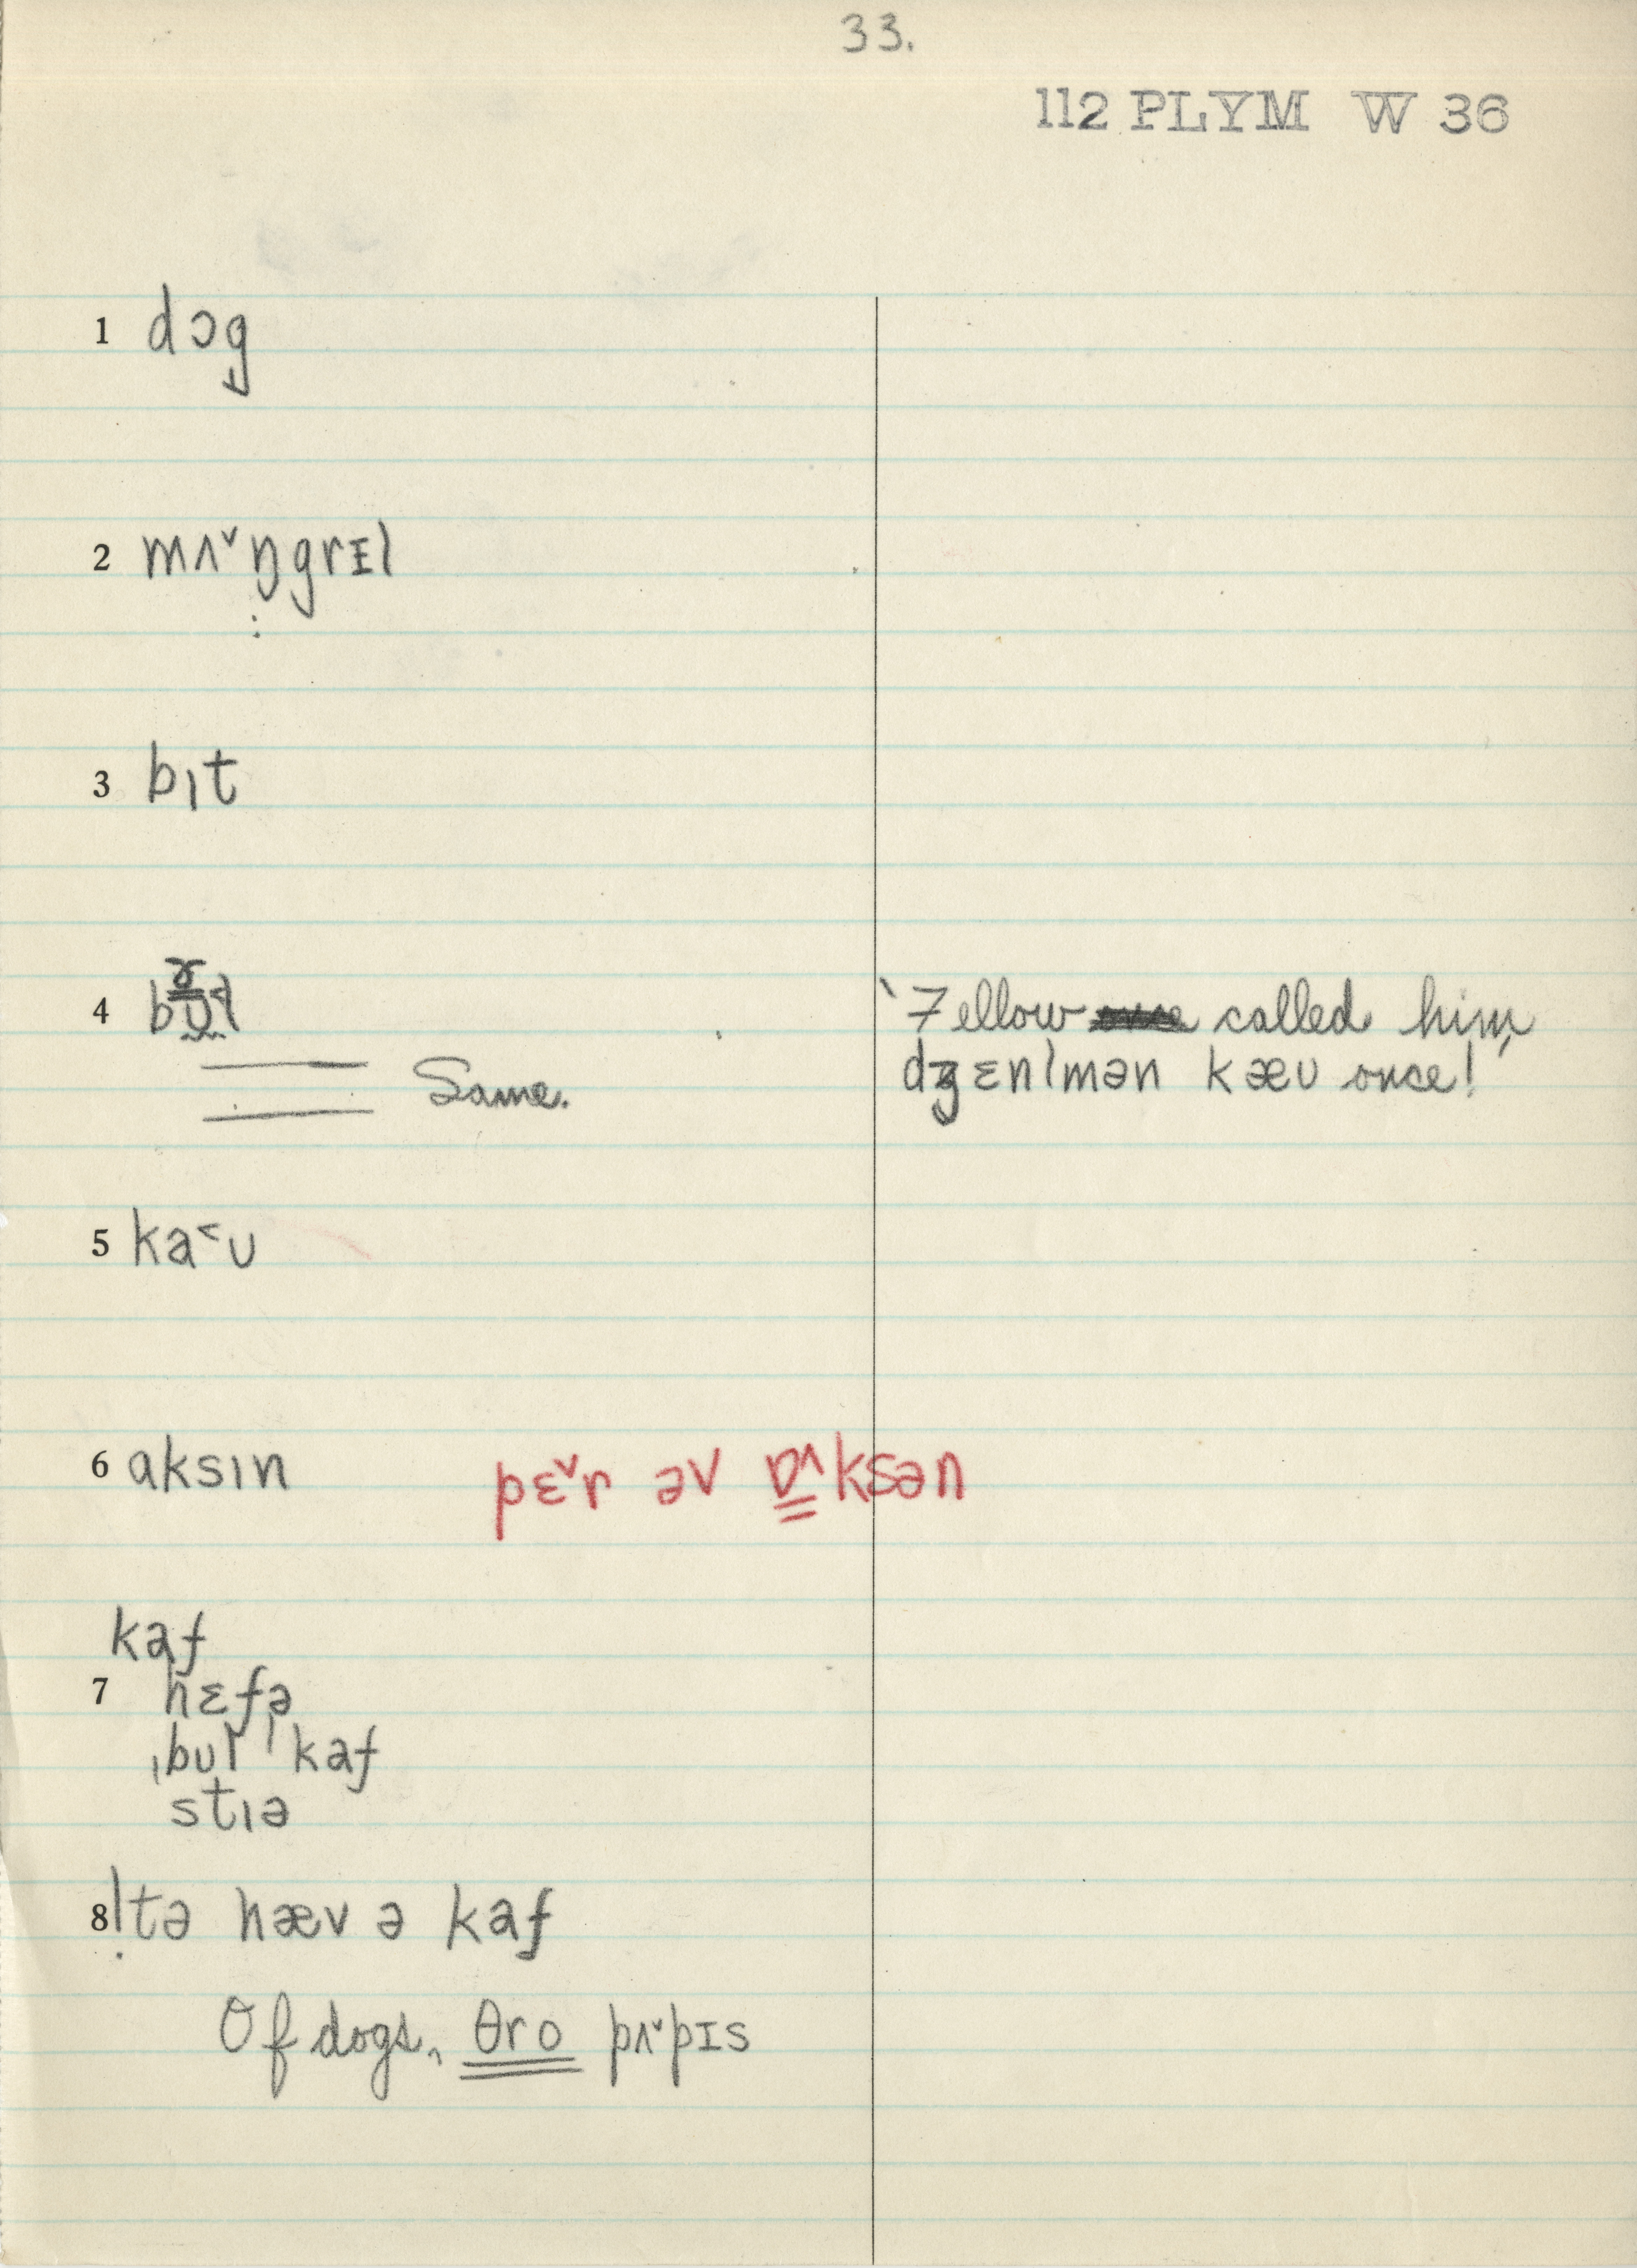 33.
112 PLYM W 36
1 dɔg
2 mʌˇŋgrɪl
3 bɪt
4
Same.
'Fellow called him,
dʒɛnlmən kæʊ once!
5 ka˂ʊ
6 aksɪn pɛˇr əv ɒ^ksən
kaf
7 hɛfə
ˌbʊl ˈkaf
stɪə
8 !tə hæv ə kaf
Of dogs, θro pʌˇpɪs